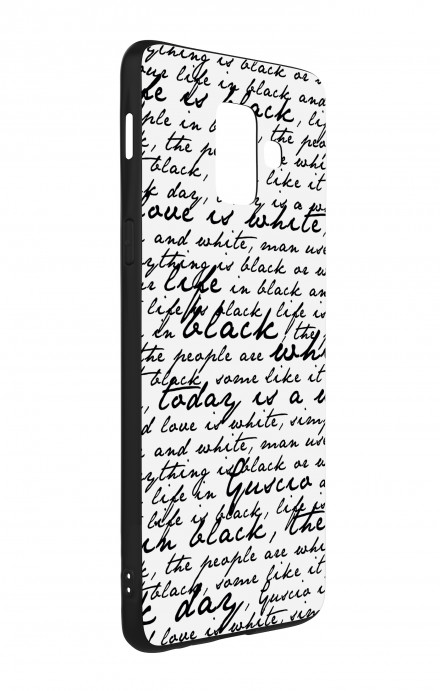 ything is black or
our life in black and
fe is black, li
ple in b
k, the p
t black, like it
k day, is a w
love is white,
and white, man use
ything is black or w
ur life in black an
life is black, life is
in black, the
the people are whi
t black, some like it
, today is a w
d love is white, sim
and white, man use
ything is black or w
life in Guscio a
life is black, life is
in black, the
, the people are whi
t black, some like it
k day, Guscio i
d love is white, sim